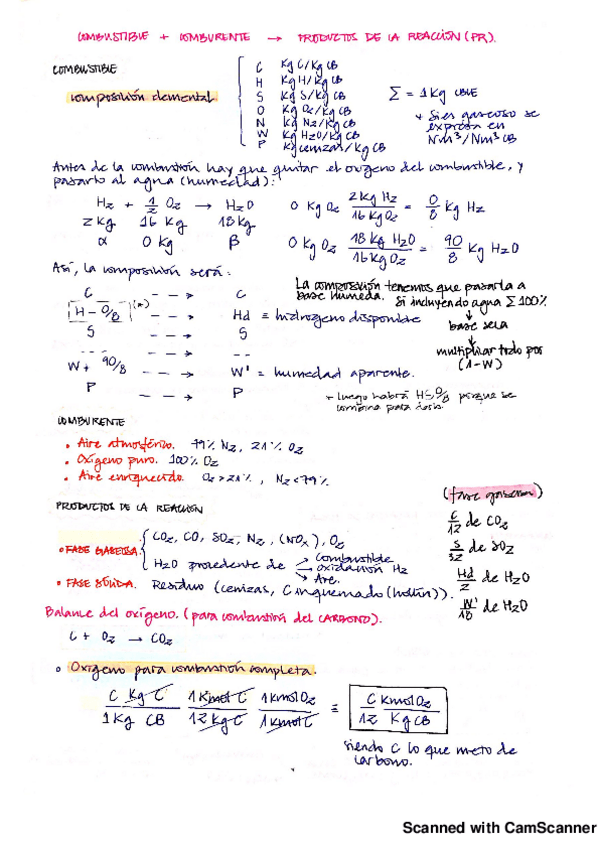 COMBUSTIBLE + COMBURENTE → PRODUCTOS DE LA REACCIÓN (PR).
COMBUSTIBLE
composición elemental
C Kg C/Kg CB
H Kg H/Kg CB
S Kg S/Kg CB
O Kg O2/Kg CB
N Kg N2/Kg CB
W Kg H2O/Kg CB
P Kg cenizas/Kg CB
Σ = 1 Kg CBLE
+ Si es gaseoso se
expresa en
Nm³/Nm³ CB
Antes de la combustión hay que quitar el oxígeno del combustible, y
pasarlo al agua (humedad):
H2 + 1/2 O2 → H2O
2 Kg 16 Kg 18 Kg
α O Kg β
O Kg O2 2 Kg H2/16 Kg O2 = O/8 Kg H2
O Kg O2 18 Kg H2O/16 Kg O2 = 9O/8 Kg H2O
Así, la composición será:
C ---→ C
H - O/8 (*) ---→ Hd ≡ hidrógeno disponible
S ---→ S
--- ---→ ---
W + 9O/8 ---→ W' ≡ humedad aparente.
P ---→ P
La composición tenemos que pasarla a
base húmeda. Si incluyendo agua Σ 100%
↓
base seca
↓
multiplicar todo por
(1-W)
+ luego habrá
porque se
combina para
COMBURENTE
• Aire atmosférico. 79% N2, 21% O2
• Oxígeno puro. 100% O2
• Aire enriquecido. O2 > 21%, N2 < 79%
PRODUCTOS DE LA REACCIÓN
• FASE GASEOSA. CO2, CO, SO2, N2, (NOx), O2
H2O procedente de → Combustible
→ oxidación H2
→ Aire.
• FASE SÓLIDA. Residuo (cenizas, C inquemado (hollín)).
(fase gaseosa)
C/12 de CO2
S/32 de SO2
Hd/2 de H2O
W'/18 de H2O
Balance del oxígeno. (para combustión del CARBONO).
C + O2 → CO2
• Oxígeno para combustión completa.
C Kg C/1 Kg CB 1 Kmol C/12 Kg C 1 Kmol O2/1 Kmol C ≡ C Kmol O2/12 Kg CB
siendo C lo que meto de
carbono.
Scanned with CamScanner